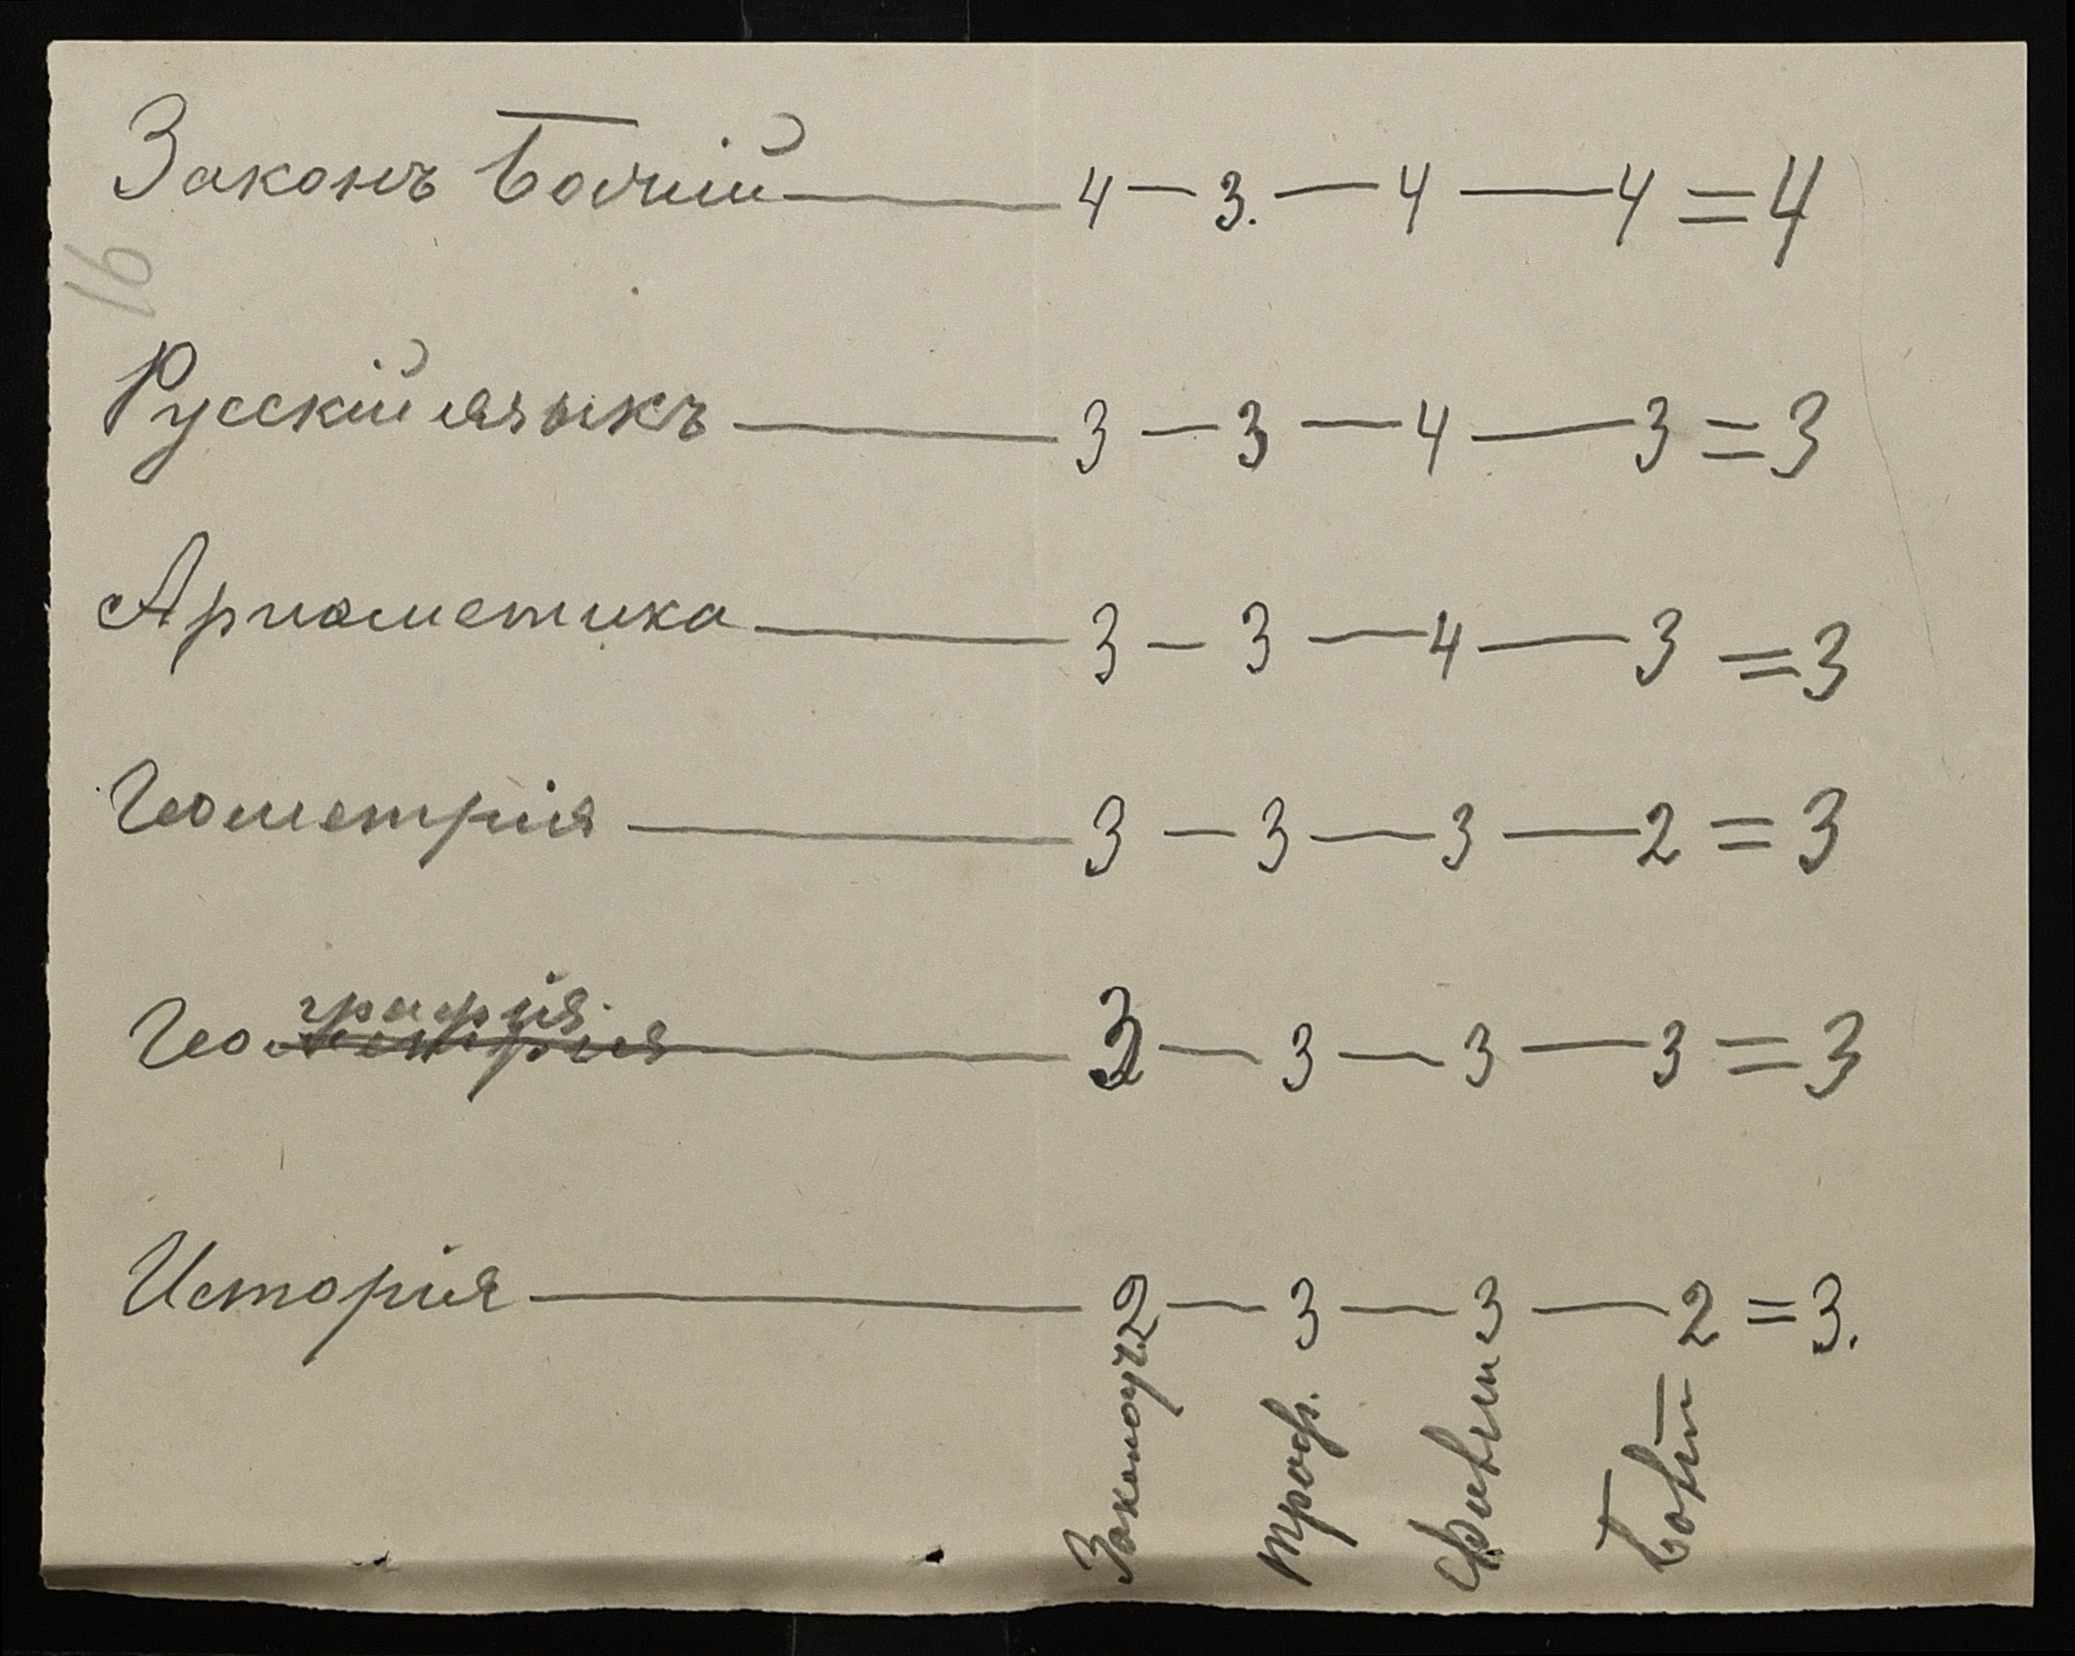 Законъ Божій — 4 — 3. — 4 — 4 = 4
16
Русскій языкъ — 3 — 3 — 4 — 3 = 3
Ариѳметика — 3 — 3 — 4 — 3 = 3
Геометрія — 3 — 3 — 3 — 2 = 3
графія.
Геометрія — 3 — 3 — 3 — 3 = 3
Исторія — 2 — 3 — 3 — 2 = 3.
Законоуч.
Проф.